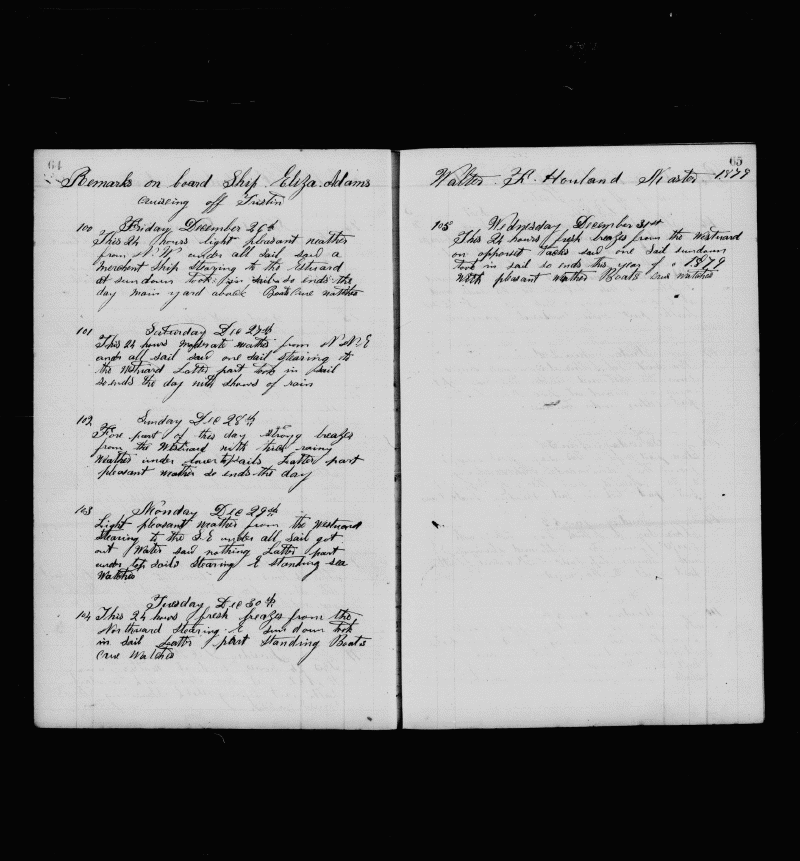 64
Remarks on board Ship Eliza Adams
Cruising off Tristin
100 Friday December 26th
This 24 hours light pleasant weather
from N. W under all sail saw a
Merchent Ship Stearing to the Estward
at sundown took in sail so ends the
day main yard aback Boats Crue watches
101 Saturday Dec 27th
This 24 hours Moderate weather from N N E
under all sail saw one sail stearing to
the Westward Latter part took in sail
so ends the day with showrs of rain
102 Sunday Dec 28th
Fore part of this day strong breazes
from the Westward with thick rainy
Weather under lowertopsails Latter part
pleasant weather so ends the day
103 Monday Dec 29th
Light pleasant weather from the Westward
Stearing to the S. E under all sail got
out Water saw nothing Latter part
under top sails Stearing E standing sea
Watches
Tuesday Dec 30th
104 This 24 hours fresh breazes from the
Northward Stearing E sun down took
in sail Latter part Standing Boats
Crue Watches
65
Walter Howland Master 1879
105 Wednesday December 31st
This 24 hours fresh breazes from the Westward
on opposet tacks saw one sail sundown
took in sail so ends this year of 1879
With pleasant weather Boats Crue watches